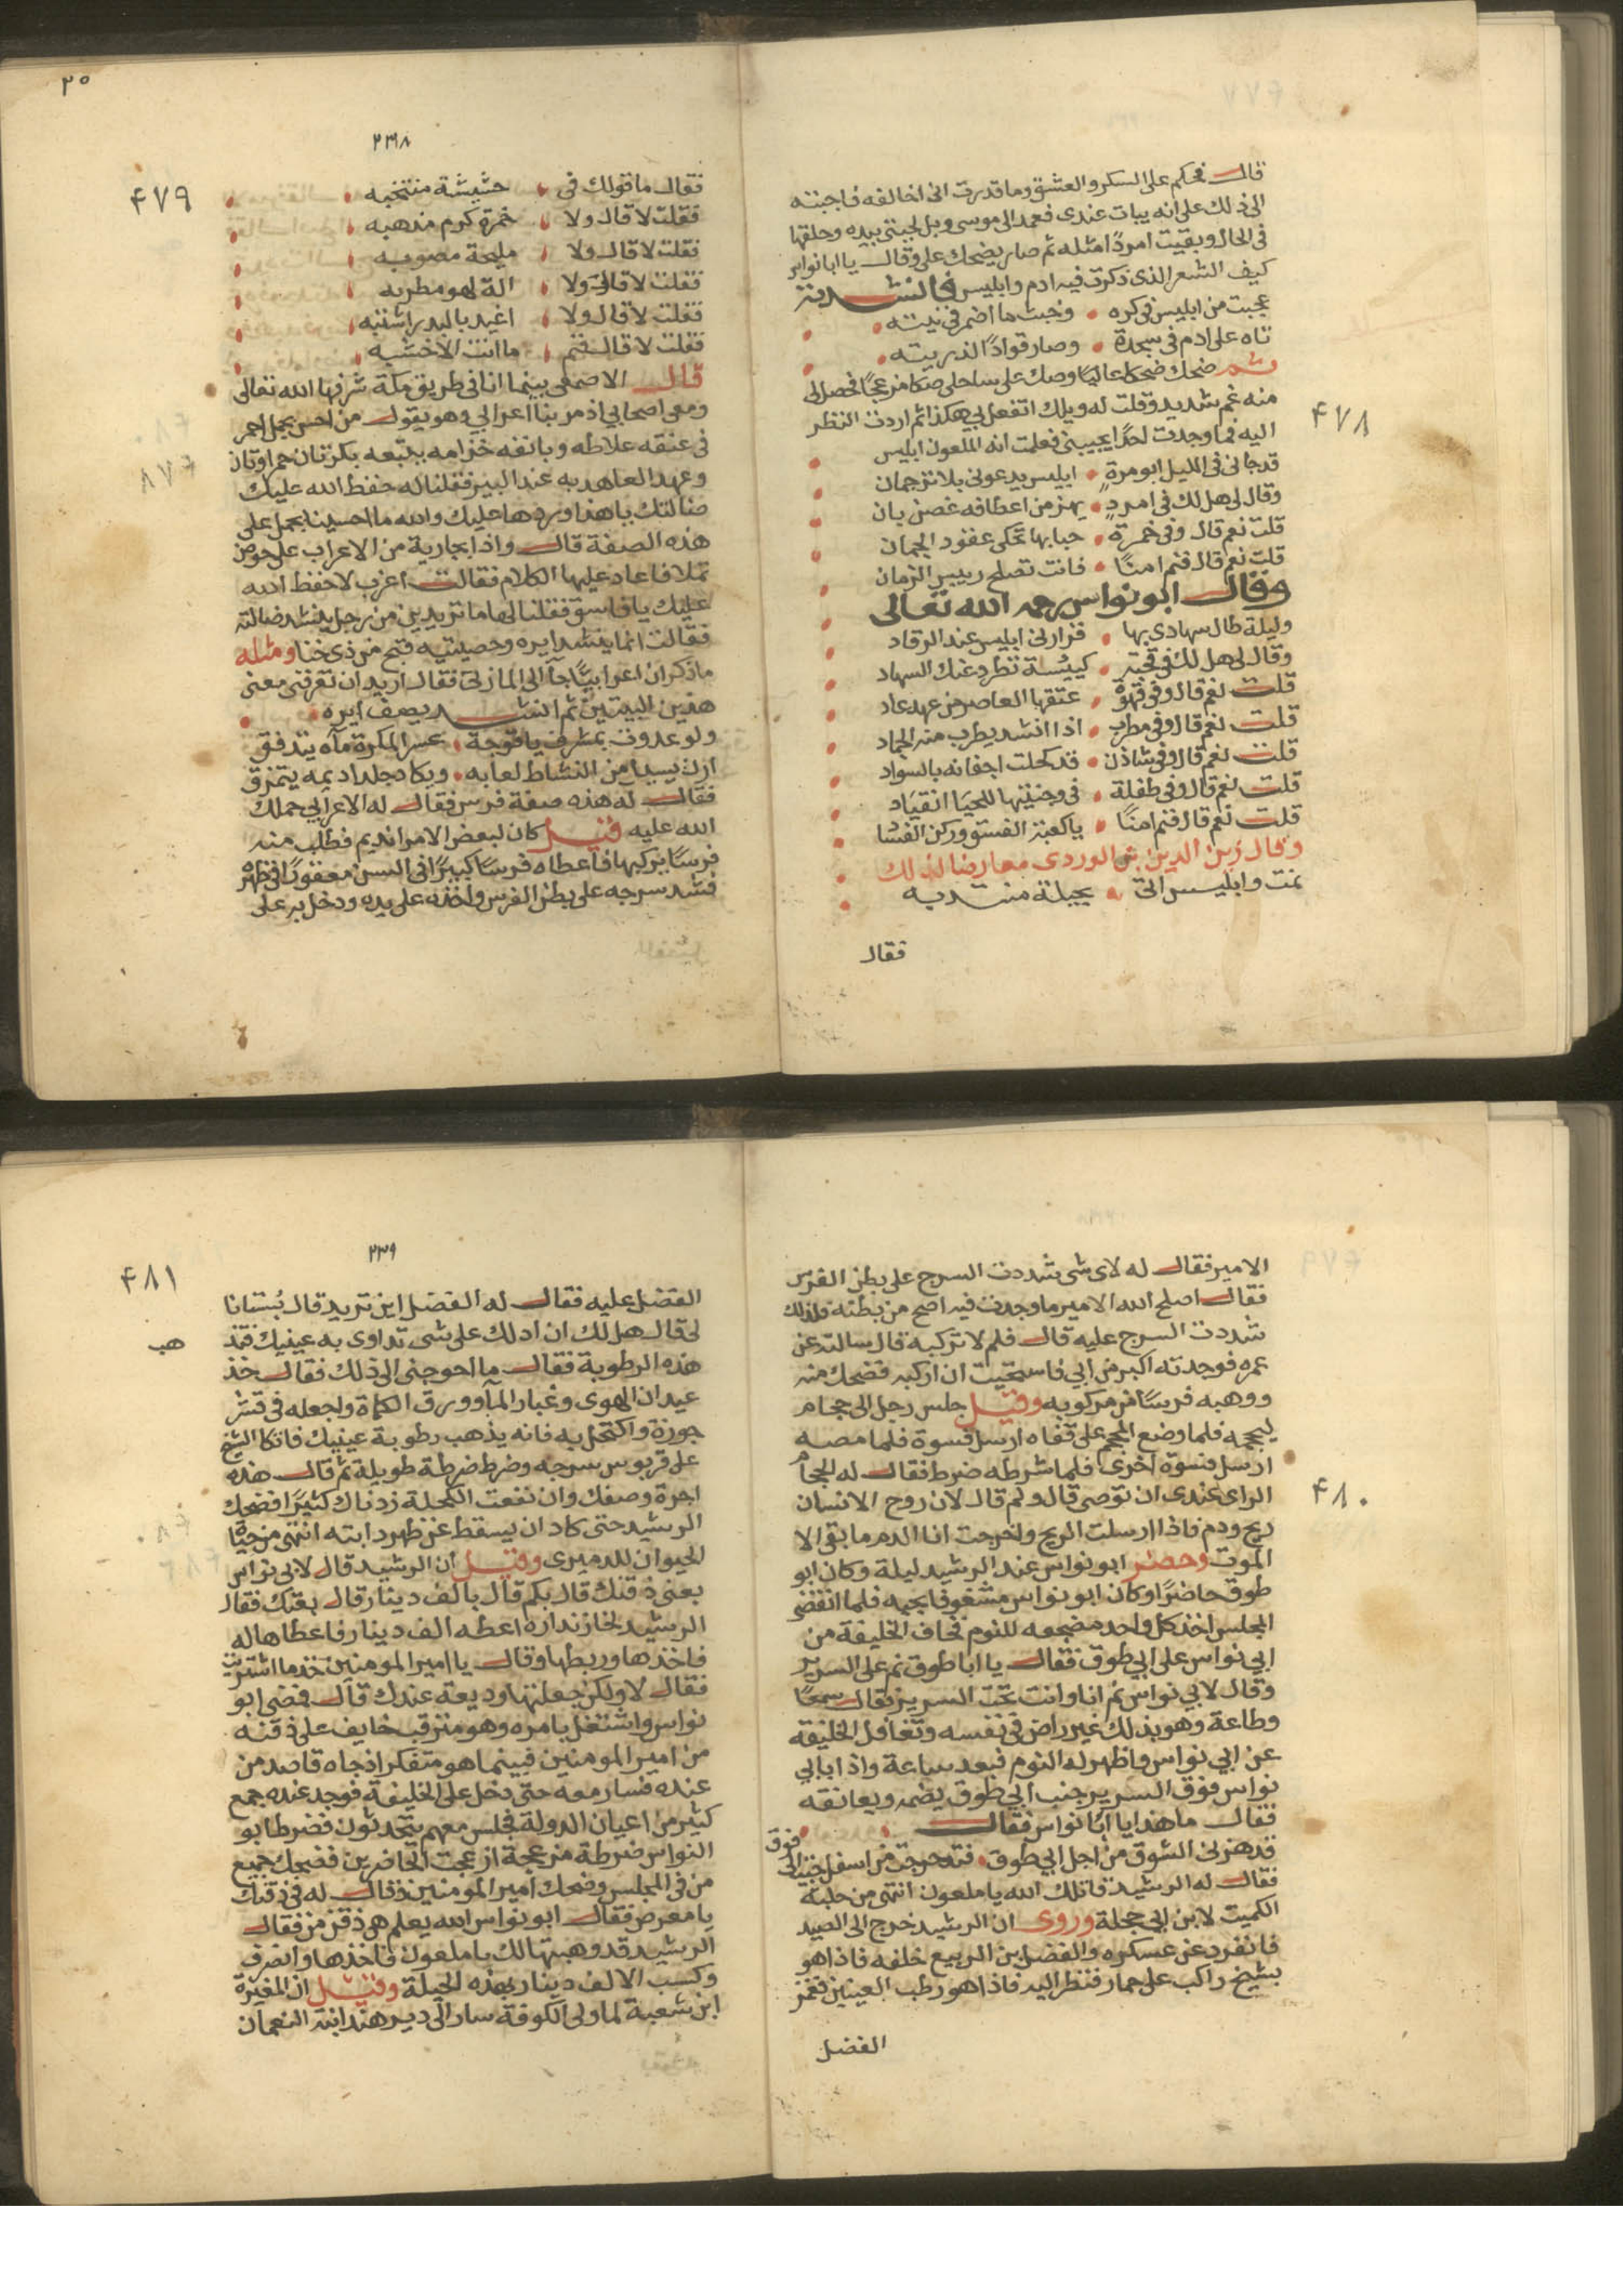 قال فحكم على السكر والعشق وما قدرت انى اخالفه فاجبته
الى ذلك على انه يبات عندى فعمد الى موسى وبل لحيتى بيده وحلقها
فى الحال وبقيت امردًا مثله ثم صار يضحك على وقال يا ابا نواس
كيف الشعر الذى ذكرت فيه ادم وابليس فانشدته
عجبت من ابليس فى كره وخبث ما اضمر فى نيته
تاه على ادم فى سجدة وصار قوادًا لذريته
ثم ضحك ضحكا عاليًا وصك على ساحلى صكا مزعجًا فحصل لى
منه غم شديد وقلت له ويلك اتفعل بى هكذا ثم اردت النظر
٤٧٨
اليه فما وجدت احدًا يجيبنى فعلمت انه الملعون ابليس
قد جانى فى الليل ابو مرة ابليس يدعونى بلا ترجمان
وقال لى هل لك فى امرد يهتز من اعطافه غصن بان
قلت نعم قال وفى خمرة حبابها تحكى عقود الجمان
قلت نعم قال فنم امنًا فانت تصلح رييس الزمان
وقال ابو نواس رحمه الله تعالى
وليلة طال سهادى بها فزارنى ابليس عند الرقاد
وقال لى هل لك فى قحبة كييسة تطرد عنك السهاد
قلت نعم قال وفى قهوة عتقها العاصر من عهد عاد
قلت نعم قال وفى مطرب اذا انشد يطرب منه الجماد
قلت نعم قال وفى شاذن قد كحلت اجفانه بالسواد
قلت نعم قال وفى طفلة فى وجنتيها للحيا انقياد
قلت نعم قال فنم امنًا ياكعبة الفسق وركن الفسا
وقال زين الدين بن الوردى معارضا لذلك
نمت وابليس اتى بحيلة منتدبه
فقال
٢٥
٢٣٨
٤٧٩
فقال ما قولك فى حشيشة منتخبه
فقلت لا قال ولا خمرة كرم مذهبه
فقلت لا قال ولا مليحة مصوبه
فقلت لا قال ولا الة لهو مطربه
فقلت لا قال ولا اغيد بالبدر اشتبه
فقلت لا قال فنم ما انت الا خشبه
قال الاصمعى بينما انا فى طريق مكة شرفها الله تعالى
ومعى اصحابى اذ مر بنا اعرابى وهو يقول من احسن بجمل احمر
فى عنقه علاطه وبانفه خزامه يتبعه بكرتان حمراوتان
وعهد العاهد به عند البير فقلنا له حفظ الله عليك
ضالتك يا هذا وردها عليك والله ما احسينا بجمل على
هذه الصفة قال واذا بجارية من الاعراب على حوض
تملا فاعاد عليها الكلام فقالت اعزب لا حفظ الله
عليك يا فاسق فقلنا لها ما تريدين من رجل ينشد ضالته
فقالت انما ينشد ايره وخصيتيه قبح من ذى خنا ومثله
ما ذكر ان اعرابيًا جآ الى المازنى فقال اريد ان تعرفنى معنى
هذين البيتين ثم انشد يصف ايره
ولو عدوت بمشرف يافوخه عسر المكرة مآه يتدفق
ارن يسيل من النشاط لعابه ويكاد جلد اديمه يتمزق
فقال له هذه صفة فرس فقال له الاعرابى حملك
الله عليه قيل كان لبعض الامرا نديم فطلب منه
فرسًا يركبها فاعطاه فرسًا كبيرًا فى السن معقورًا فى ظهره
فشد سرجه على بطن الفرس واخذه على يده ودخل به على
الامير فقال له لاى شى شددت السرج على بطن الفرس
فقال اصلح الله الامير ما وجدت فيه اصح من بطنه فلذلك
شددت السرج عليه قال فلم لا تركبه قال سالته عن
عمره فوجدته اكبر من ابى فاستحيت ان اركبه فضحك منه
ووهبه فرسًا من مركوبه وقيل جلس رجل الى حجام
ليحجمه فلما وضع المحجم على قفاه ارسل فسوة فلما مصه
ارسل فسوة اخرى فلما شرطه ضرط فقال له الحجام
٤٨٠
الراى عندى ان توصى قال ولم قال لان روح الانسان
ريح ودم فاذا ارسلت الريح واخرجت انا الدم ما بقى الا
الموت وحضر ابو نواس عند الرشيد ليلة وكان ابو
طوق حاضرًا وكان ابو نواس مشغوفا بحبه فلما انقضى
المجلس اخذ كل واحد مضجعه للنوم فخاف الخليفة من
ابى نواس على ابى طوق فقال يا ابا طوق نم على السرير
وقال لابى نواس نم انا وانت تحت السرير فقال سمعًا
وطاعة وهو بذلك غير راض فى نفسه وتغافل الخليفه
عن ابى نواس واظهر له النوم فبعد ساعة واذا بابى
نواس فوق السرير جنب ابى طوق يضمه ويعانقه
فقال ما هذا يا ابا نواس فقال
قد هزنى الشوق من اجل ابى طوق فتدحرجت من اسفل جيت الى فوق
فقال له الرشيد قاتلك الله يا ملعون انتهى من حلبة
الكميت لابن ابى حجلة وروى ان الرشيد خرج الى الصيد
فانفرد عن عسكره والفضل بن الربيع خلفه فاذا هو
بشيخ راكب على حمار فنظر اليه فاذا هو رطب العينين فغمز
الفضل
٢٣٩
٤٨١
الفضل عليه فقال له الفضل اين تريد قال بُستانا
لى قال هل لك ان ادلك على شى تداوى به عينيك فتذ
هب
هذه الرطوبة فقال ما احوجنى الى ذلك فقال خذ
عيدان الهوى وغبار المآ وورق الكماة واجعله فى قشر
جوزة واكتحل به فانه يذهب رطوبة عينيك فاتكا الشيخ
على قربوس سرجه وضرط ضرطة طويلة ثم قال هذه
اجرة وصفك وان نفعت الكحلة زدناك كثيرًا فضحك
الرشيد حتى كاد ان يسقط عن ظهر دابته انتهى من حياة
الحيوان للدميرى وقيل ان الرشيد قال لابى نواس
بعنى ذقنك قال بكم قال بالف دينار قال بعتك فقال
الرشيد لخازنداره اعطه الف دينار فاعطاها له
فاخذها وربطها وقال يا امير المومنين خذ ما اشتريت
فقال لا ولكن جعلتها وديعة عندك قال فمضى ابو
نواس واشتغل بامره وهو مترقب خايف على ذقنه
من امير المومنين فبينما هو متفكر اذ جاه قاصد من
عنده فسار معه حتى دخل على الخليفة فوجد عنده جمع
كثير من اعيان الدولة فجلس معهم يتحدثون فضرط ابو
النواس ضرطة مزعجة ازعجت الحاضرين فضحك جميع
من فى المجلس وضحك امير المومنين وقال له فى ذقنك
يا معرص فقال ابو نواس الله يعلم هى ذقن من فقال
الرشيد قد وهبتها لك يا ملعون فاخذها وانصرف
وكسب الالف دينار بهذه الحيلة وقيل ان المغيرة
ابن شعبة لما ولى الكوفة سار الى دير هند ابنة النعمان